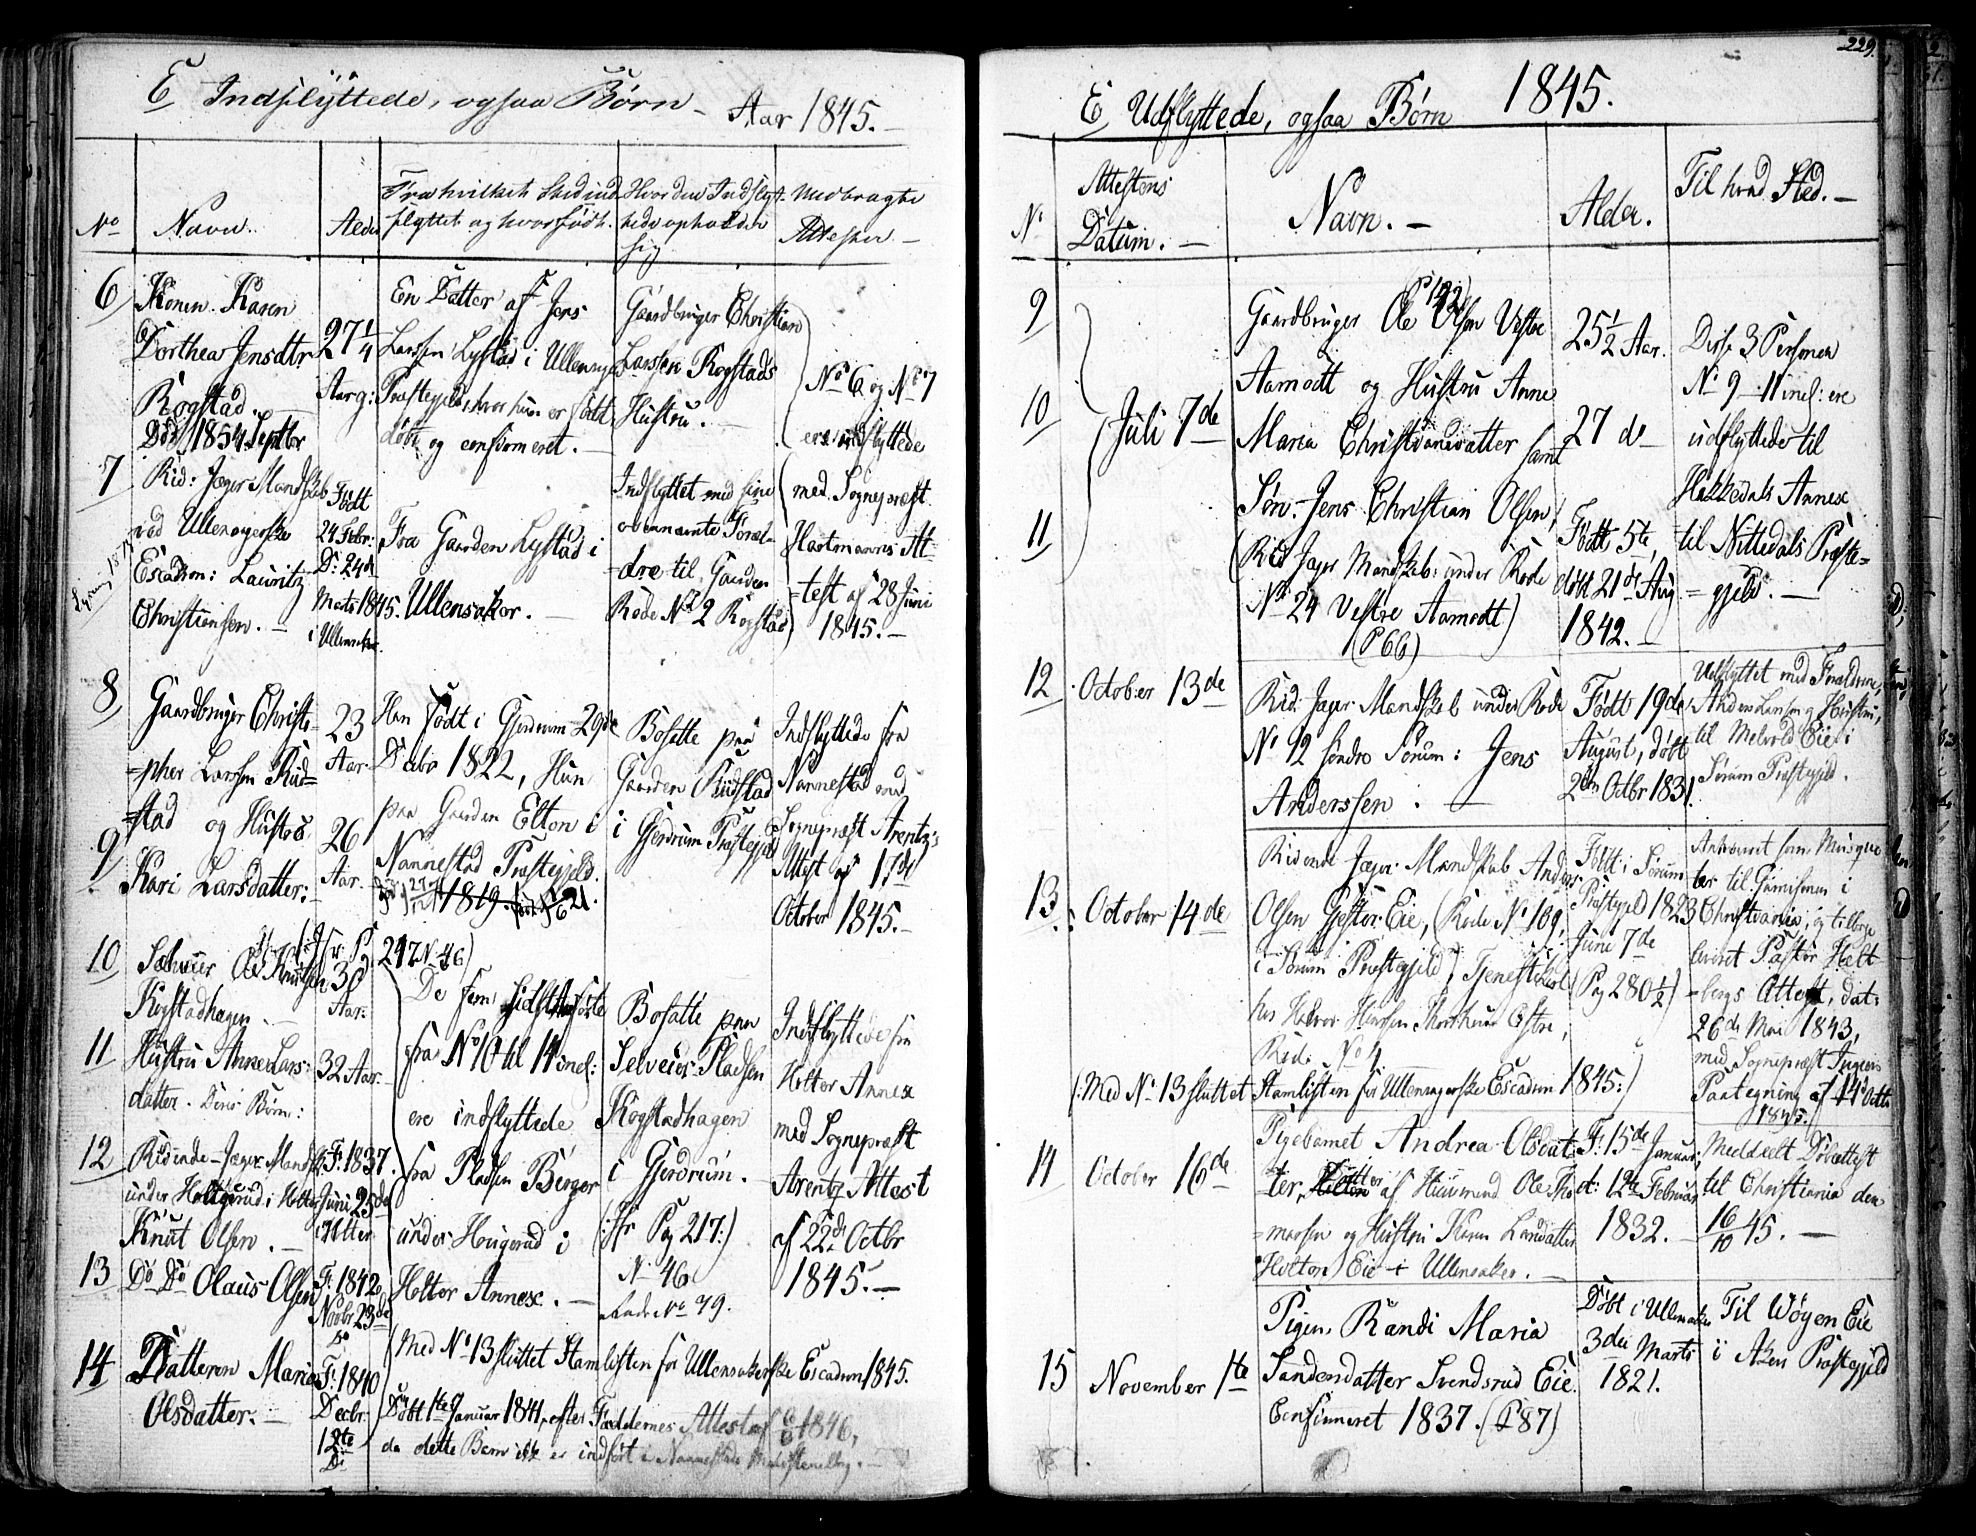 E Indflyttede, ogsaa Børn – Aar 1845. –
No
Navn.
Alder
Fra hvilket Sted ind-
flyttet og hvor født.
Hvor den Indflyt-
tede opholder
sig
Medbragte
Attester –
6
Konen Karen
Dorthea Jensdtr
Rogstad.
Død 1854 Septbr
27 1/4
Aar g:
En Datter af Jens
Larssen Lystad i Ullensager
Præstegjeld, hvor hun er født,
døbt og confirmeret. –
Gaardbruger Christian
Larssen Rogstads
Hustru. –
No 6 og No 7
ere indflyttede
7
Rid: Jæger Mandskab
ved Ullensagerske
Escadron: Lauritz
Christiansen. –
Født
24 Febr:
D: 24de
Marts 1845.
i Ullensaker.
Fra Gaarden Lystad i
Ullensaker. –
Indflyttet med sine
ovennævnte Foræl-
dre til Gaarden
Rode No 2 Rogstad
med Sognepræst
Hartmanns At-
test af 28 Juni
1845. –
8
Gaardbruger Christo-
pher Larsen Rud-
stad og Hustru
23
Aar.
Han født i Gjerdrum 29de
Decbr 1822, Hun
paa Gaarden Elton i
Nannestad Præstegjeld.
Bosatte paa
Gaarden Rudstad
i Gjerdrum Præstegjeld
Indflyttede fra
Nannestad med
Sognepræst Arentz's
Attest af 17de
October 1845. –
9
Kari Larsdatter: –
26
Aar.
1819.
10
Selveier Ole Knutsen
Kogstadhagen –
36
Aar.
217 No 46)
De fem sidst anførte
fra No 10 til 14 incl:
ere indflyttede
fra Pladsen Berger
under Hougerud i
Holter Annex. –
Bosatte paa
Selveier Pladsen
Kogstadhagen
i Gjerdrum. –
(:Jfr Pag 217:)
No 46
Lade No 79.
Indflyttede fra
Holter Annex
med Sognepræst
Arentz Attest
af 22de Octbr
1845. –
11
Hustru Anne Lars-
datter. Deres Børn:
32 Aar.
12
Ridende Jæger Mandsk.
under Hougerud i Holter
Knut Olsen. –
F: 1837.
Juni 25de
i Holter
13
Do Do Olaus Olsen
F: 1842
Novbr 23de
Do
14
Datteren Maria
Olsdatter: –
F: 1840
Decbr:
12te
Do
(Med No 13 sluttet Stamlisten for Ullensakerske Escadron 1845.
Døbt 1te Januar 1841, efter Fad­dernes Attest af 1846,
da dette Barn ikke er indført i Nannestads Ministerialbog. –
229.
E Udflyttede, ogsaa Børn 1845.
No
Attestens
Datum. –
Navn. –
Alder.
Til hvad Sted. –
9
10
11
Juli 7de
P 142)
Gaardbruger Ole Olsen Vestre
Aamodt og Hustru Anne
Maria Christiansdatter samt
Søn Jens Christian Olsen,
(Rid Jæger Mandskab: under Rode
No 24 Vestre Aamodt)
(P 66)
25 1/2 Aar.
27 do
Født 5te,
døbt 21de Aug
1842. –
Disse 3 Personer
No 9 – 11 incl: ere
udflyttede til
Hakkedals Annex
til Nittedals Præste-
gjeld. –
12
October 13de
Rid: Jæger Mandskab under Rode
No 12 søndre Sørum: Jens
Anderssen. –
Født 19de
August, døbt
2den Octbr 1831.
Udflyttet med Forældrene,
Anders Larsen og Hustru,
til Melvold Eie i
Sørum Præstegjeld.
13
October 14de
Ridende Jæger Mandskab Anders
Olsen Gjestør Eie, (Rode No 109,
i Sørum Præstegjeld, Tjenestekarl
hos Halvor Hansen Østre,
Rode No 4
Født i Sørum
Præstegjeld 1823
Juni 7de
(Pag 280 1/2)
Antaget som Musque-
ter til Garnisonen i
Christiania, og tilbage-
leveret Pastor Helt-
bergs Attest, dat:
26de Mai 1843,
med Sognepræst
Paategning af 14de Octbr
1845.
(:Med No 13 sluttet Stamlisten for Ullensagerske Escadron 1845:)
14
October 16de
Pigebarnet Andrea Olsdat-
ter, Datter af Huusmand Ole Tho-
massen og Hustru Karen Larsdatter
Holton Eie i Ullensaker. –
F: 15de Januar,
d: 12te Februar
1832. –
Meddeelt Døbeattest
til Christiania den
16/10 45. –
15
November 1te
Pigen Randi Maria
Sandersdatter Svendsrud Eie.
Confirmeret 1837. (P 87)
Døbt i Ullensaker
3die Marts
1821.
Til Wøyen Eie
i Aker Præstegjeld